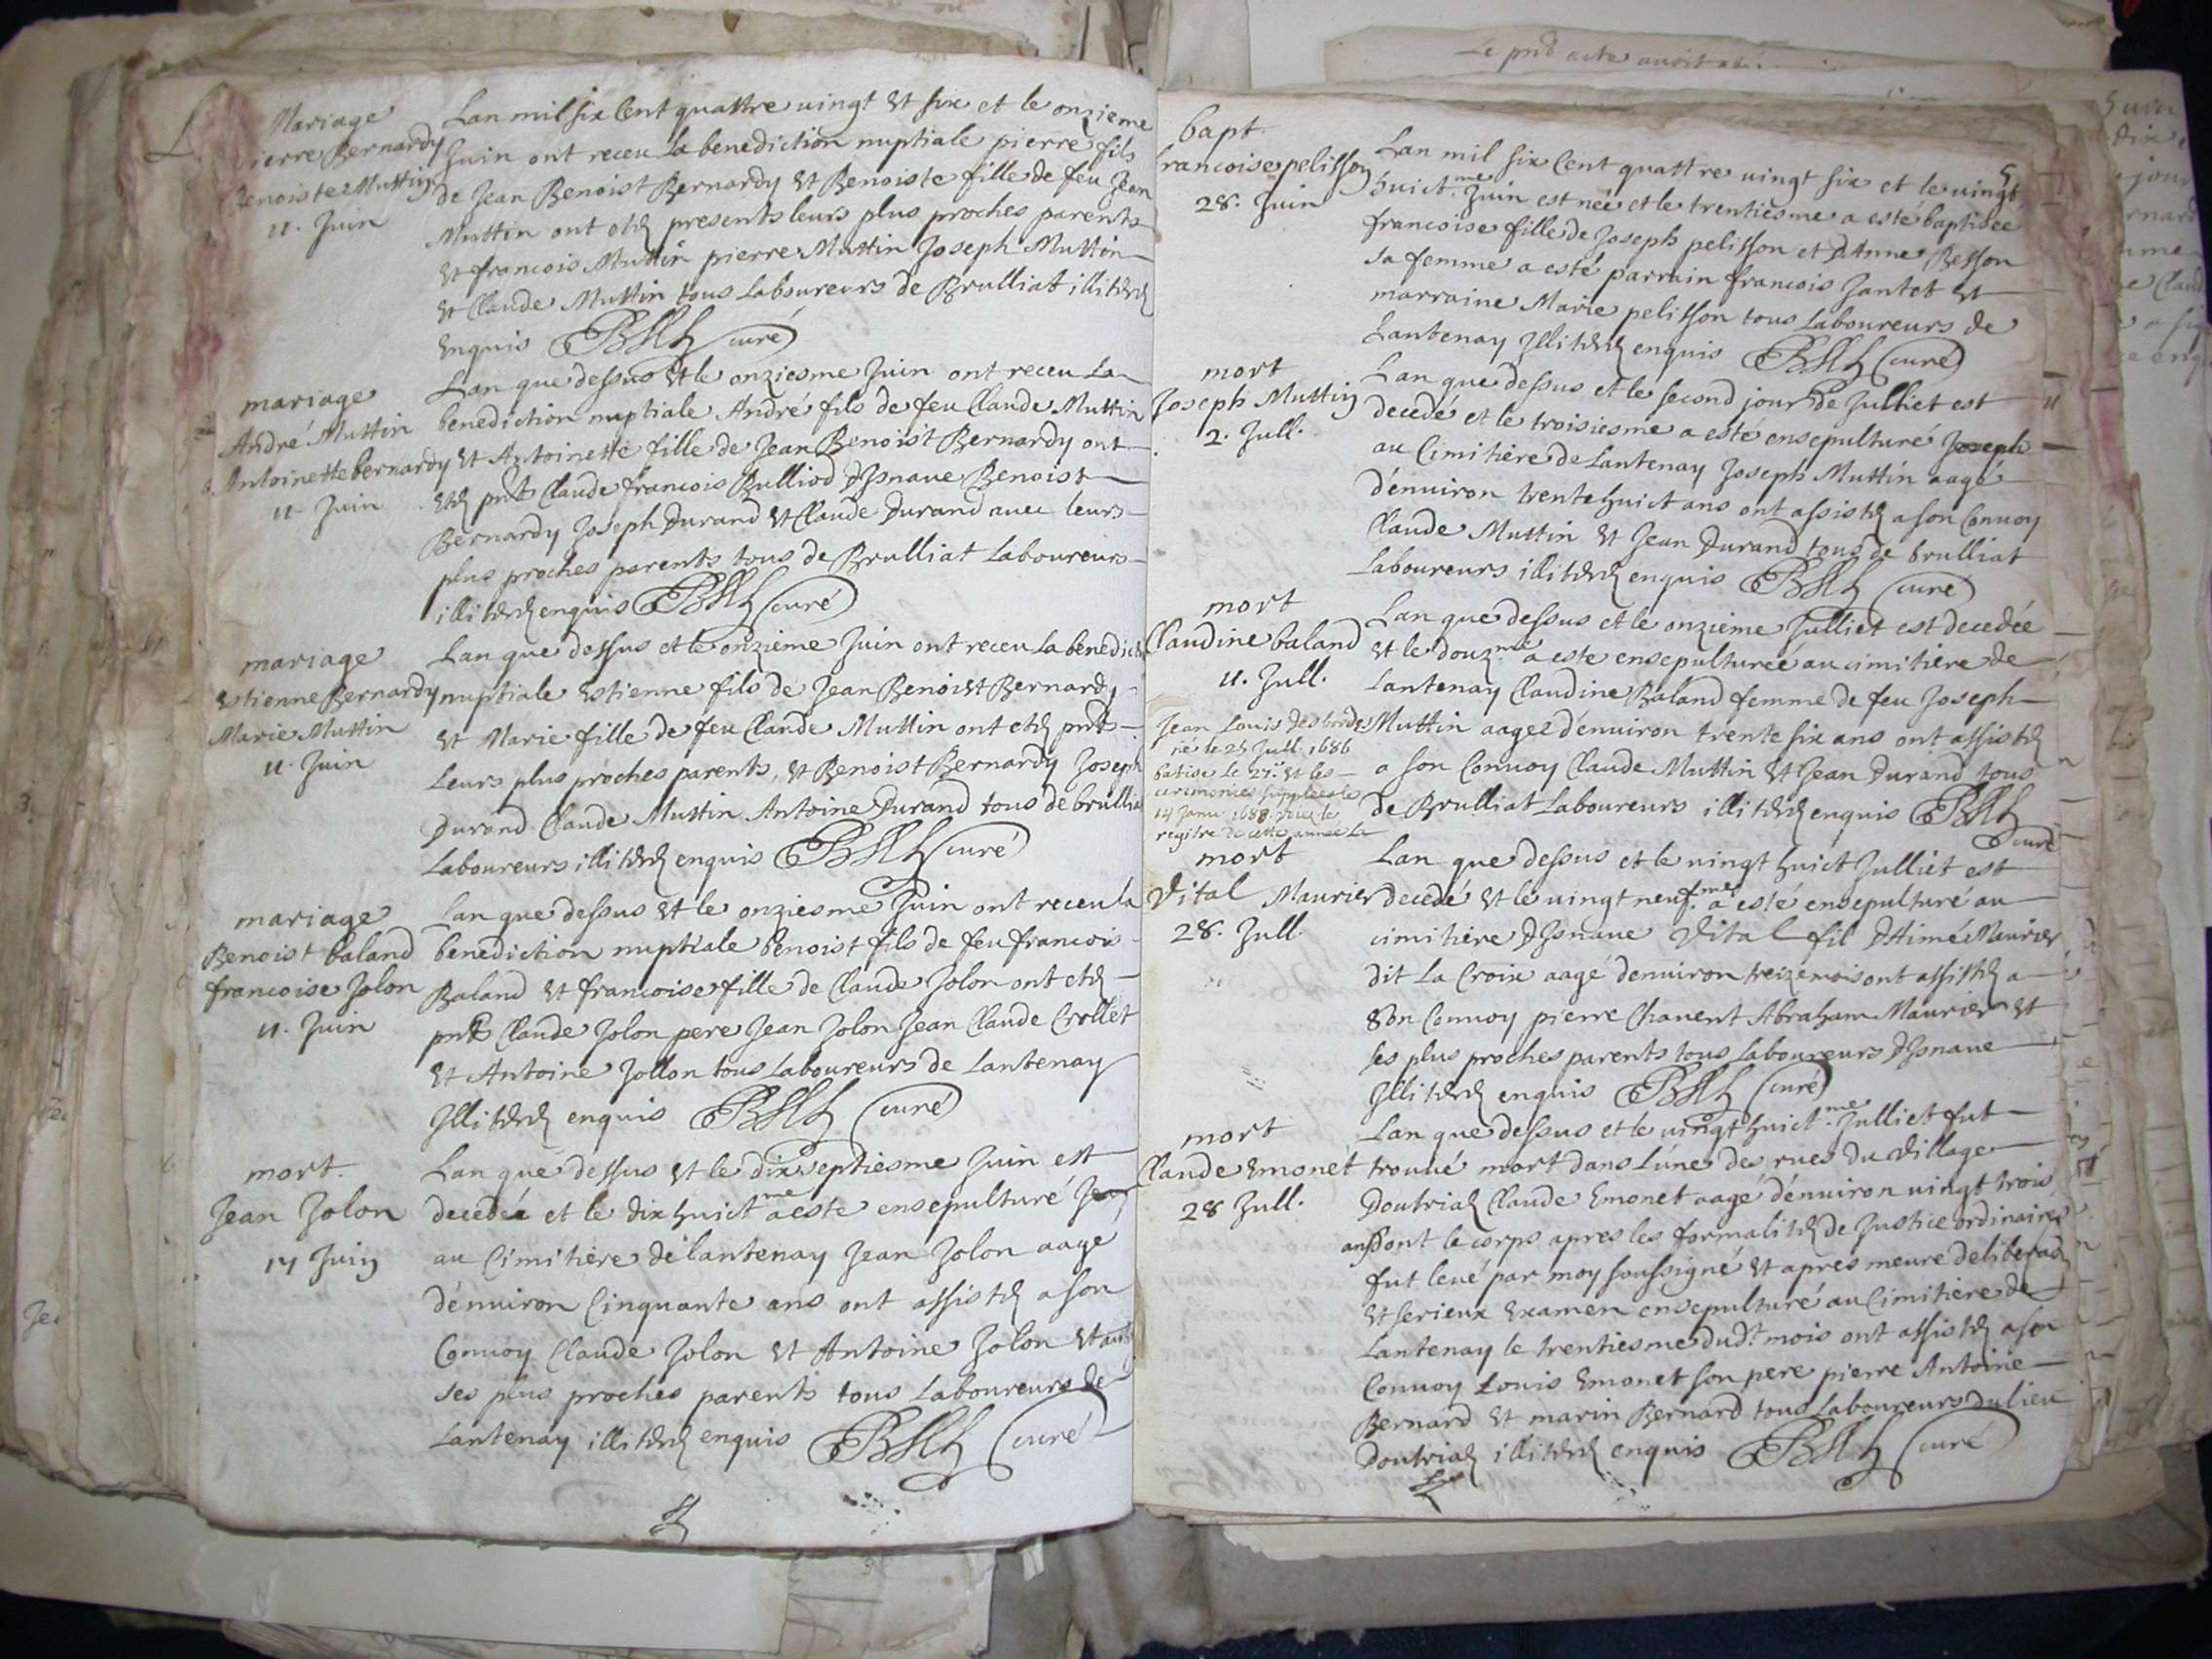 Mariage
Pierre Bernardy
Benoiste Muttin
11. Juin
Lan mil six Cent quattre uingt et six et le onzieme
Juin ont receu la benediction nuptiale pierre fils
de Jean Benoist Bernardy et Benoiste fille de feu Jean
Muttin ont etez presents leurs plus proches parents
et francois Muttin pierre Muttin Joseph Muttin
et Claude Muttin tous Laboureurs de Brulliat illiterez
enquis curé
mariage
André Muttin
Antoinette bernardy
11. Juin
Lan que dessus et le onziesme Juin ont receu La
benediction nuptiale André fils de feu Claude Muttin
et Antoinette fille de Jean Benoist Bernardy ont
etez pnts Claude francois Bulliod d'Isnaue Benoist
Bernardy Joseph Durand et Claude Durand auec leurs
plus proches parents tous de Brulliat Laboureurs
illiterez enquis curé
mariage
Estienne Bernardy
Marie Muttin
11. Juin
Lan que dessus et le onzieme Juin ont receu La benedict
nuptiale Estienne fils de Jean Benoist Bernardy
et Marie fille de feu Claude Muttin ont etez pnts
Leurs plus proches parents, et Benoist Bernardy Joseph
Durand Claude Muttin Antoine Durand tous de brullia
Laboureurs illiterez enquis curé
mariage
Benoist baland
francoise Jolon
11. Juin
Lan que dessus et le onziesme Juin ont receu la
benediction nuptiale benoist fils de feu francois
Baland et francoise fille de Claude Jolon ont etez
pnts Claude Jolon pere Jean Jolon Jean Claude Crollet
et Antoine Jollon tous Laboureurs de Lantenay
Illiterez enquis curé
mort.
Jean Jolon
17 Juin
Lan que dessus et le dix septiesme Juin est
decedée et le dix huict me a esté ensepulturé Jean
au Cimitiere de lantenay Jean Jolon aage
d'enuiron Cinquante ans ont assistez a son
Conuoy Claude Jolon et Antoine Jolon et
ses plus proches parents tous Laboureurs de
Lantenay illiterez enquis curé
Le pnt acte auoit
5
bapt.
francoise pelisson
28. Juin
Lan mil six Cent quattre uingt six et le uingt
huict.me Juin est neé et le trentiesme a esté baptisée
francoise fille de Joseph pelisson et d'Anne Besson
sa femme a esté parrain francois Jantet et
marraine Marie pelisson tous Laboureurs de
Lantenay Illiterez enquis curé
mort
Joseph Muttin
2. Jull.
Lan que dessus et le second jour de Julliet est
decedé et le troisiesme a esté ensepulturé Joseph
au Cimitiere de Lantenay Joseph Muttin aagé
d'enuiron trente huict ans ont assistez a son Conuoy
Claude Muttin et Jean Durand tous de brulliat
Laboureurs illiterez enquis curé
mort
Claudine baland
11. Jull.
Lan que dessus et le onzieme Julliet est decedée
et le douz.me a este ensepultureé au cimitiere de
Lantenay Claudine Baland femme de feu Joseph
Muttin aageé d'enuiron trente six ans ont assistez
a son Conuoy Claude Muttin et Jean Durand tous
de Brulliat Laboureurs illiterez enquis
curé
Jean Louis Desbordes
né le 25 Jull. 1686
batisé Le 27.e et les
ceremonies suppleeés le
14 Janu. 1688
regitre de cette année La
mort
Vital Maurier
28. Jull.
Lan que dessus et le uingt huict Julliet est
decedé et le uingt neuf.me a esté ensepulturé au
cimitiere d'Isnaue Vital fil d'Aimé Maurier
dit La Croix aagé d'enuiron treize mois ont assistez a
son Conuoy pierre Chanent Abraham Maurier et
ses plus proches parents tous Laboureurs d'Isnaue
Illiterez enquis curé
mort
Claude Emonet
28 Jull.
Lan que dessus et le uingt huict.me Julliet fut
trouué mort dans L'une des rues du Village
Doutriaz Claude Emonet aagé d'enuiron uingt trois
ans dont le corps apres les formalitez de Justice ordinaires
fut leué par moy soussigné et apres meure
et serieux Examen ensepulturé au Cimitiere de
Lantenay le trentiesme dud.t mois ont assistez a son
Conuoy Louis Emonet son pere pierre Antoine
Bernard et marin Bernard tous Laboureurs du lieu
Doutriaz illiterez enquis curé